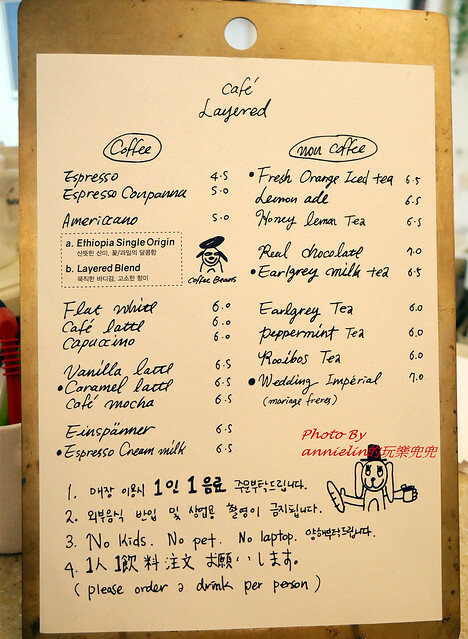 Café
Layered
Coffee
Espresso 4.5
Espresso Conpanna 5.0
Americcano 5.0
a. Ethiopia Single Origin
산뜻한 산미, 꽃/과일의 달콤함
b. Layered Blend
묵직한 바디감, 고소한 향미
Coffee Beans
Flat white 6.0
Café latte 6.0
Capuccino 6.0
Vanilla latte 6.5
• Caramel latte 6.5
Café mocha 6.5
Einspänner 6.5
• Espresso Cream milk 6.5
non coffee
• Fresh Orange Iced tea 6.5
Lemon ade 6.5
Honey lemon Tea 6.5
Real chocolate 7.0
• Earlgrey milk tea 6.5
Earlgrey Tea 6.0
peppermint Tea 6.0
Rooibos Tea 6.0
• Wedding Impérial 7.0
(mariage freres)
Photo By
annielin的玩樂兜兜
1. 매장 이용시 1인 1음료 주문부탁드립니다.
2. 외부음식 반입 및 상업용 촬영이 금지됩니다.
3. No kids. No pet. No laptop. 양해부탁드립니다.
4. 1人 1飲料 注文 お願いします。
(please order a drink per person)